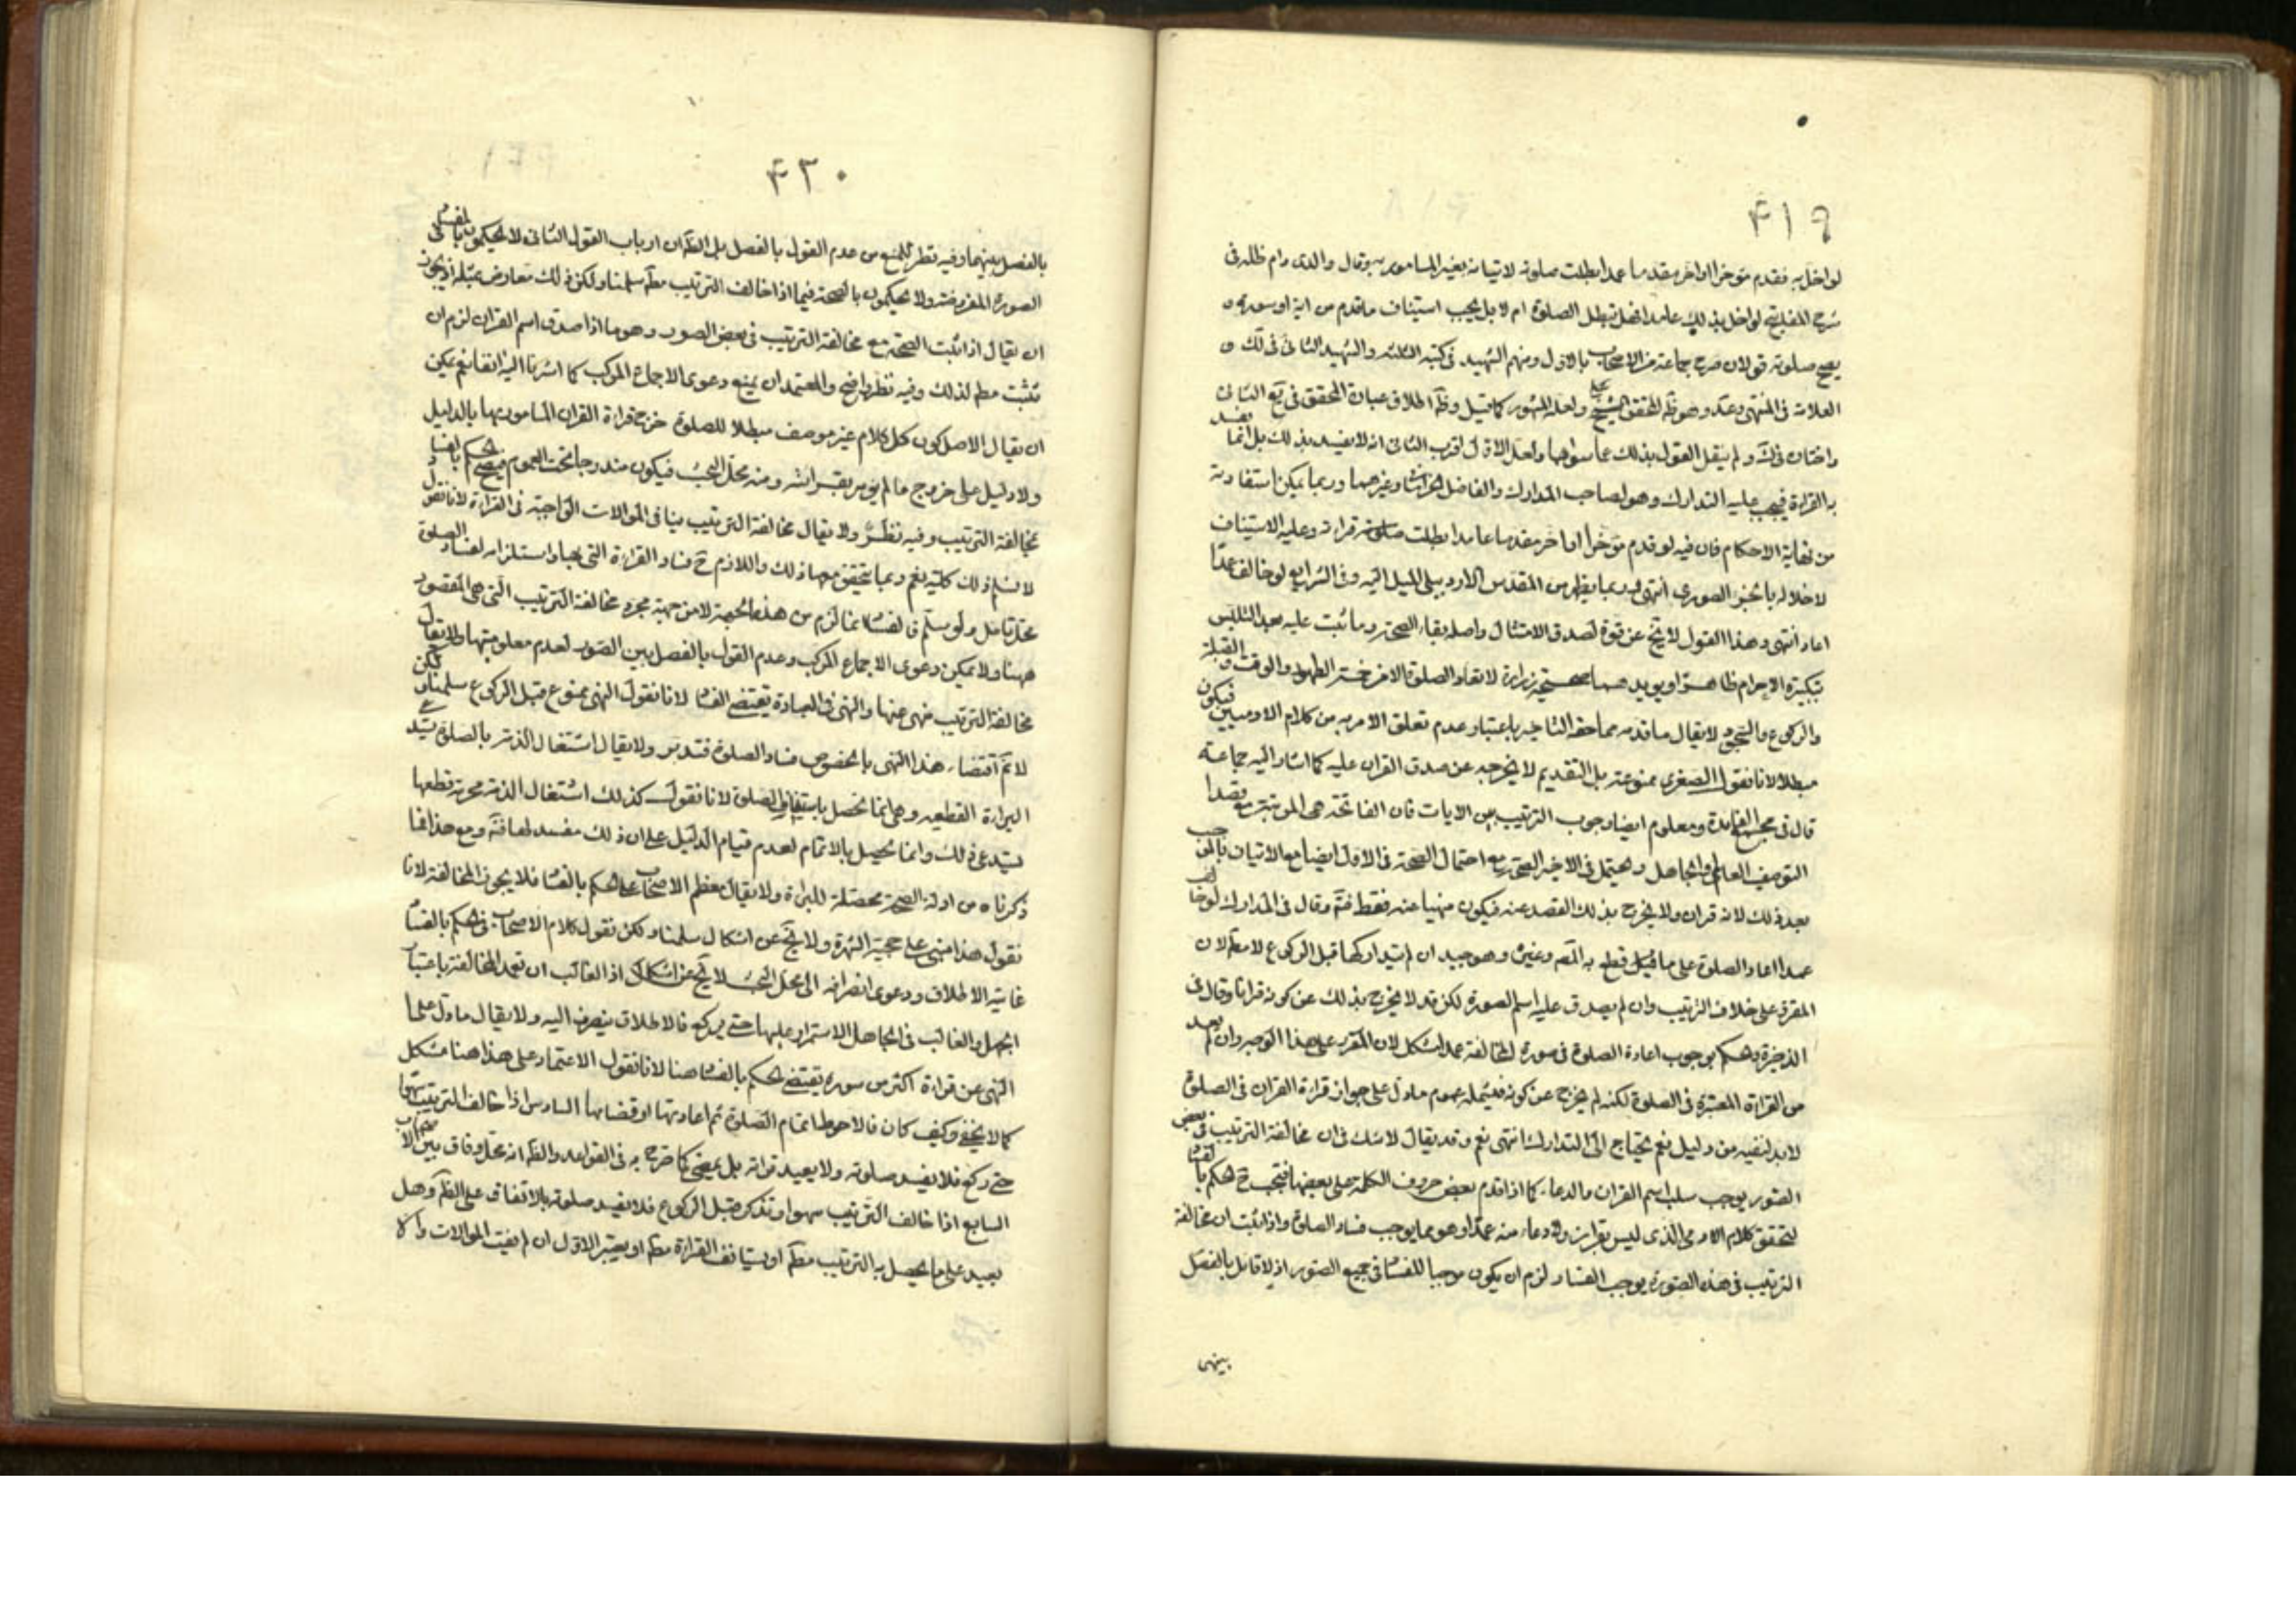 ۴۱۹
لو اخل به فقدم مؤخرا او اخر مقدما عمدا بطلت صلوته لاتيانه بغير المامور به وقال والدى دام ظله فى
شرح المفاتيح لو اخل بذلك عامدا فهل تبطل الصلوة ام لا بل يجب استيناف ماقدم من اية او سورة و
يصح صلوته قولان صرح جماعة من الاصحاب بالاول ومنهم الشهيد فى كتبه الثلثة والشهيد الثانى فى لك و
العلامة فى المنتهى وعد وهو ظ المحقق الشيخ على ولعله المشهور كما قيل وظ اطلاق عبارة المحقق فى يع الثانى
واختاره فى ك ولم ينقل القول بذلك عما سواهما ولعل الاول اقرب الثانى انه لا يفسد بذلك بل انما يفسد
به القراءة فيجب عليه التدارك وهو لصاحب المدارك والفاضل الخراسانى وغيرهما وربما يمكن استفادته
من نهاية الاحكام فان فيه لو قدم مؤخرا او اخر مقدما عامدا بطلت قراءته وعليه الاستيناف
لاخلاله بالجزء الصورى انتهى وربما يظهر من المقدس الاردبيلى الميل اليه وفى الشرايع لو خالف عمدا
اعاد انتهى وهذا القول لا يخ عن قوة لصدق الامتثال واصل بقاء الصحة وما ثبت عليه بعد التلبس
بتكبيرة الاحرام ظاهرا ويؤيدهما صحيحة زرارة لا تعاد الصلوة الا من خمسة الطهور والوقت والقبلة
والركوع والسجود لا يقال ماقدمه مماحقه التاخير باعتبار عدم تعلق الامر به من كلام الادميين فيكون
مبطلا لانا نقول الصغرى ممنوعة بل التقديم لا يخرجه عن صدق القران عليه كما اشار اليه جماعة
قال فى مجمع الفايدة ومعلوم ايضا وجوب الترتيب بين الايات فان الفاتحة هى المرتبة مع قصدا
بعد ذلك لانه قران ولا يخرج بذلك القصد عنه فيكون منهيا عنه فقط فتم وقال فى المدارك لو خالف
عمدا اعاد الصلوة على ما قطع به المص وغيره وهو جيد ان لم يتداركها قبل الركوع لا مطلقا لان
المقروء على خلاف الترتيب وان لم يصدق عليه اسم السورة لكنه لا يخرج بذلك عن كونه قرانا وقال فى
الذخيرة والحكم بوجوب اعادة الصلوة فى صورة المخالفة عمدا مشكل لان المقروء على هذا الوجه وان لم يعد
من القراءة المعتبرة فى الصلوة لكنه لم يخرج عن كونه فيشمله عموم مادل على جواز قراءة القران فى الصلوة
لا بد لنفيه من دليل نعم يحتاج الى التدارك انتهى نعم وقد يقال لا شك فى ان مخالفة الترتيب فى بعض
الصور يوجب سلب اسم القران والدعاء كما اذا قدم بعض حروف الكلمة على بعضها فيجب ح الحكم بالفساد
لتحقق كلام الادمى الذى ليس بقران ولا دعاء منه عمدا وهو مما يوجب فساد الصلوة واذا ثبت ان مخالفة
الترتيب فى هذه الصورة يوجب الفساد لزم ان يكون موجبا للفساد فى جميع الصور اذ لا قائل بالفصل
بينهى
۴۲۰
بالفصل بينهما وفيه نظر للمنع من عدم القول بالفصل بل الظ ان ارباب القول الثانى لا يحكمون بالفساد فى
الصورة المفروضة ولا يحكمون بالصحة فيما اذا خالف الترتيب مط سلمنا ولكن ذلك معارض بمثله اذ يجوز
ان يقال اذا ثبت الصحة مع مخالفة الترتيب فى بعض الصور وهو ما اذا صدق اسم القران لزم ان
تثبت مط لذلك وفيه نظر واضح والمعتمد ان يمنع دعوى الاجماع المركب كما اشرنا اليه انفا نعم يمكن
ان يقال الاصل كون كل كلام غير موصف مبطلا للصلوة خرج قراءة القران المامور بها بالدليل
ولا دليل على خروج ما لم يؤمر بقرائته ومنه محل البحث فيكون مندرجا تحت العموم فيصح الحكم بافساد
مخالفة الترتيب وفيه نظر ولا يقال مخالفة الترتيب ينافى الموالات الواجبة فى القراءة لانا نقول
لا نسلم ذلك كلية نعم ربما يتحقق معها ذلك واللازم ح فساد القراءة التى بها واستلزامه لفساد الصلوة
محل تامل ولو سلم فالفساد انما لزم من هذه الجهة لا من جهة مجرد مخالفة الترتيب التى هى المقصود
ههنا ولا يمكن دعوى الاجماع المركب وعدم القول بالفصل بين الصور لعدم معلوميتها ولا يقال
مخالفة الترتيب منهى عنها والنهى فى العبادة يقتضى الفساد لانا نقول النهى ممنوع قبل الركوع سلمنا ولكن
لا نم اقتضاء هذا النهى بالخصوص فساد الصلوة فتدبر ولا يقال اشتغال الذمة بالصلوة يستدعى
البراءة القطعية وهى انما تحصل باستيناف الصلوة لانا نقول كذلك اشتغال الذمة بحرمة قطعها
يستدعى ذلك وانما يحصل بالاتمام لعدم قيام الدليل على ان ذلك مفسد لها فتم ومع هذا فما
ذكرناه من ادلة الصحة محصلة للبراءة ولا يقال معظم الاصحاب على الحكم بالفساد فلا يجوز المخالفة لانا
نقول هذا مبنى على حجية الشهرة ولا يخ عن اشكال سلمنا ولكن نقول كلام الاصحاب فى الحكم بالفساد
غايته الاطلاق ودعوى انصرافه الى محل البحث لا يخ عن اشكال اذ الغالب ان تعمد المخالفة باعتبار
الجهل والغالب فى الجاهل الاستمرار عليها حتى يركع فالاطلاق ينصرف اليه ولا يقال مادل على
النهى عن قراءة اكثر من سورة يقتضى الحكم بالفساد هنا لانا نقول الاعتماد على هذا هنا مشكل
كما لا يخفى وكيف كان فالاحوط اتمام الصلوة ثم اعادتها او قضائها السادس اذا خالف الترتيب سهوا
حتى ركع فلا يفسد صلوته ولا يعيد قراءته بل يمضى كما صرح به فى القواعد والظ انه محل وفاق بين الاصحاب
السابع اذا خالف الترتيب سهوا وتذكر قبل الركوع فلا يفسد صلوته بالاتفاق على الظ وهل
يعيد على ما يحصل به الترتيب مط او يستانف القراءة مط او يعتبر الاول ان لم يفت الموالات والا